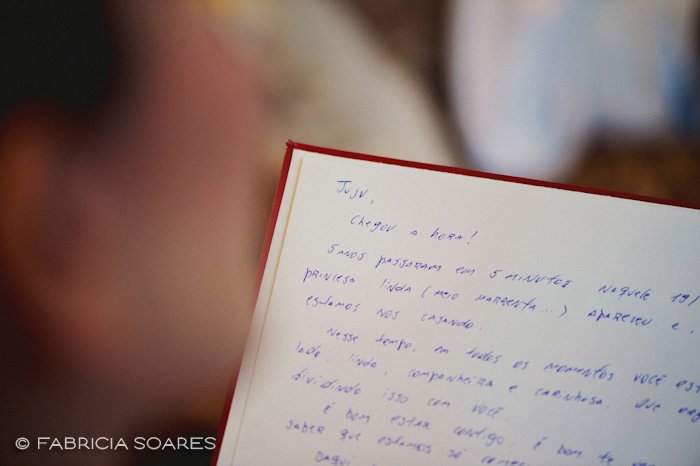 Juju,
Chegou a hora!
5 anos passaram em 5 minutos. Naquele 19/
princesa linda (meio marrenta...) apareceu e
estamos nos casando.
Nesse tempo, em todos os momentos você est
lado, linda, companheira e carinhosa. Que
dividindo isso com você.
É bom estar contigo. É bom te
saber que estamos só
Daqui
© FABRICIA SOARES